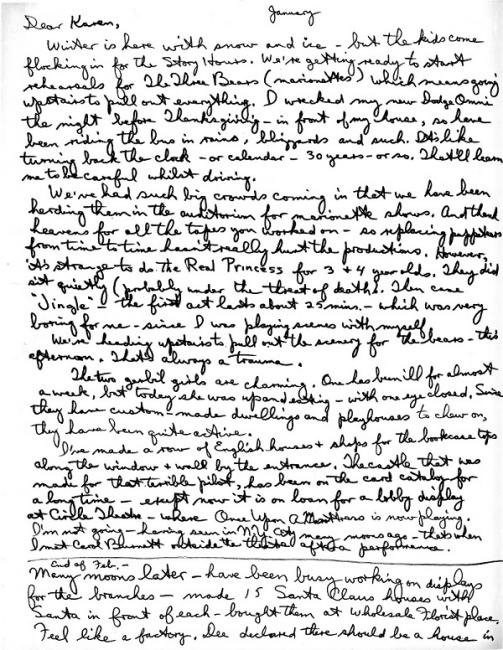 January
Dear Karen,
Winter is here with snow and ice - but the kids come
flocking in for the Story Hours. We're getting ready to start
rehearsals for The Three Bears (marionettes) which means going
upstairs to pull out everything. I wrecked my new Dodge Omni
the night before Thanksgiving - in front of my house, so have
been riding the bus in rains, blizzards and such. It's like
turning back the clock - or calendar - 30 years - or so. That'll learn
me to be careful whilst driving.
We've had such big crowds coming in that we have been
herding them in the auditorium for marionette shows. And thank
heavens for all the tapes you worked on - so replacing puppeteers
from time to time hasn't really hurt the productions. However,
it's strange to do the Real Princess for 3 + 4 year olds. They did
sit quietly (probably under the threat of death). Then came
"Jingle" - the first act lasts about 25 mins. - which was very
boring for me - since I was playing scenes with myself
We're heading upstairs to pull out the scenery for the bears - this
afternoon. That's always a trauma.
The two gerbil girls are charming. One has been ill for almost
a week, but today she was up and eating - with one eye closed. Since
they have custom-made dwellings and playhouses to chew on,
they have been quite active.
I've made a row of English houses + shops for the bookcase tops
along the window + wall by the entrance. The castle that was
made for that terrible pilot, has been on the card catalog for
a long time - except now it is on loan for a lobby display
at Circle Theatre - where Once Upon A Mattress is now playing.
I'm not going - having seen in NY City many moons ago - that's when
I met Carol Burnett outside the theatre after a performance.
End of Feb. -
Many moons later - have been busy working on displays
for the branches - made 15 Santa Claus houses with
Santa in front of each - bought them at wholesale Florist place.
Feel like a factory. Dee declared there should be a house in